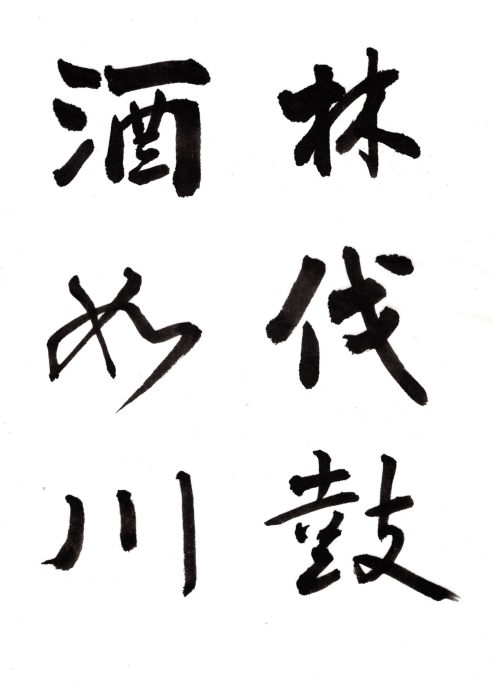 林伐鼓
酒如川